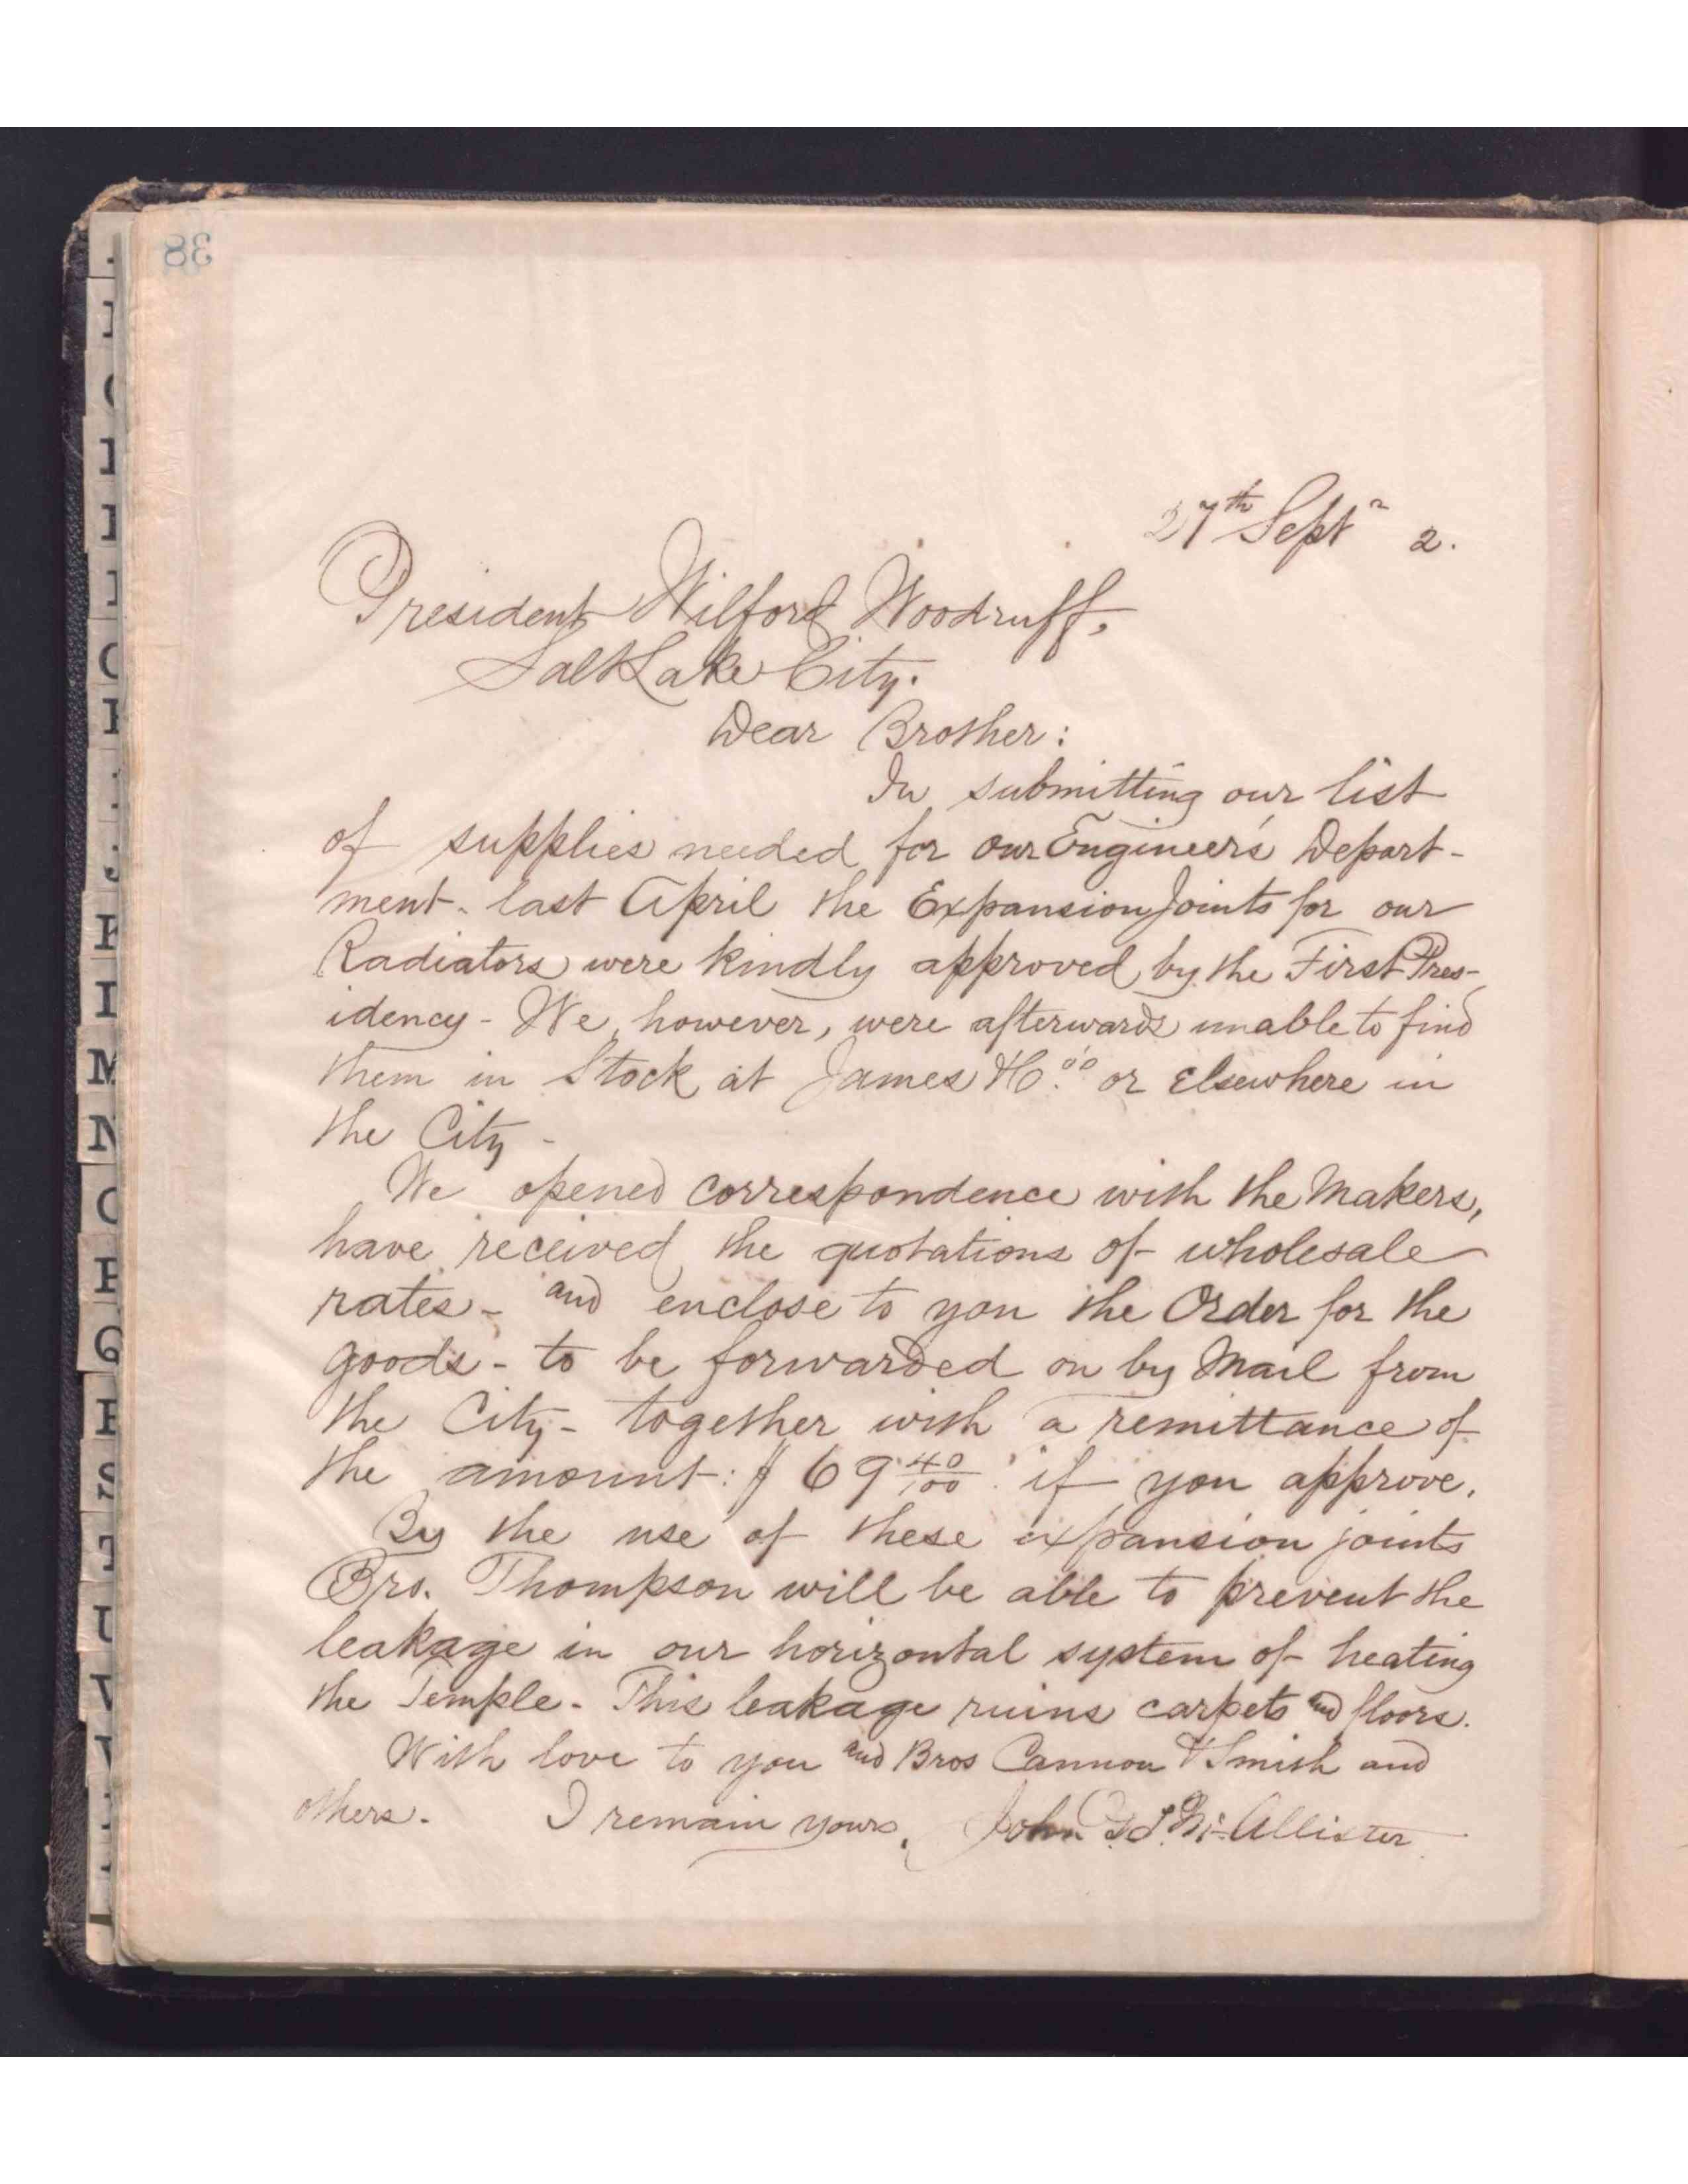 38
27th Septr 2.
President Wilford Woodruff,
Salt Lake City.
Dear Brother:
In submitting our list
of supplies needed for our Engineer's Depart-
ment - last April the Expansion Joints for our
Radiators were kindly approved by the First Pres-
idency - We, however, were afterwards unable to find
them in Stock at James or Elsewhere in
the City -
We opened correspondence with the Makers,
have received the quotations of wholesale
rates - and enclose to you the Order for the
goods - to be forwarded on by Mail from
the City - together with a remittance of
the amount: $69 40/100 : if you approve.
By the use of these expansion joints
Bro. Thompson will be able to prevent the
leakage in our horizontal system of heating
the Temple - This leakage ruins carpets and floors.
With love to you and Bros Cannon & Smith and
others. I remain yours, John D. T. McAllister